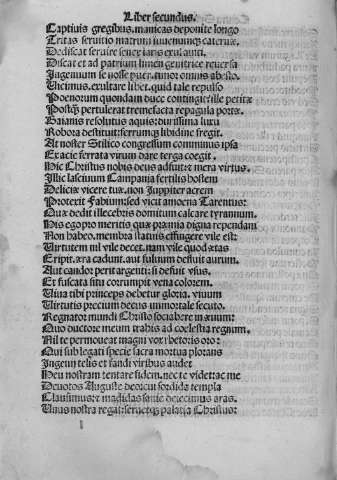 Liber secundus.
Captiuis gregibus, manicas deponite longo
Tritas seruitio matrum iuuenumq; cateruæ.
Dediscat seruire senex laris exul auiti.
Discat et ad patrium limen genitrice reuersa
Ingenuum se nosse puer. timor omnis abesto.
Vicimus. exultare libet. quid tale repulso
Poenorum quondam duce contigit ille petitæ
Postq̃ pertulerat tremefacta repagula portæ.
Baianis resolutus aquis: durissima luxu
Robora destituit: ferrumq; libidine fregit.
At noster Stilico congressum comminus ipsa
Ex acie ferrata virum dare terga coegit.
Hic Christus nobis deus adfuit: et mera virtus.
Illic lasciuum Campania fertilis hostem
Deliciæ vicere tuæ. non Juppiter acrem
Protexit Fabium: sed vicit amoena Tarentus:
Quæ dedit illecebris domitum calcare tyrannum.
His ego pro meritis quæ præmia digna rependam
Non habeo. membra statuis effingere vile est:
Virtutem nil vile decet. nam vile quod ætas
Eripit. æra cadunt. aut fuluum defluit aurum.
Aut candor perit argenti: si defuit vsus.
Et fuscata situ corrumpit vena colorem.
Viua tibi princeps debetur gloria. viuum
Virtutis precium decus immortale secuto.
Regnator mundi Christo sociabere in æuum:
Quo ductore meum trahis ad coelestia regnum.
Nil te permoueat magni vox rhetoris oro:
Qui sub legati specie sacra mortua plorans
Ingenij telis et fandi viribus audet
Heu nostram tentare fidem. nec te videt: ac me
Deuotos Auguste deo: cui sordida templa
Clausimus: et madidas sanie deiecimus aras.
Vnus nostra regat: seruetq; palatia Christus: